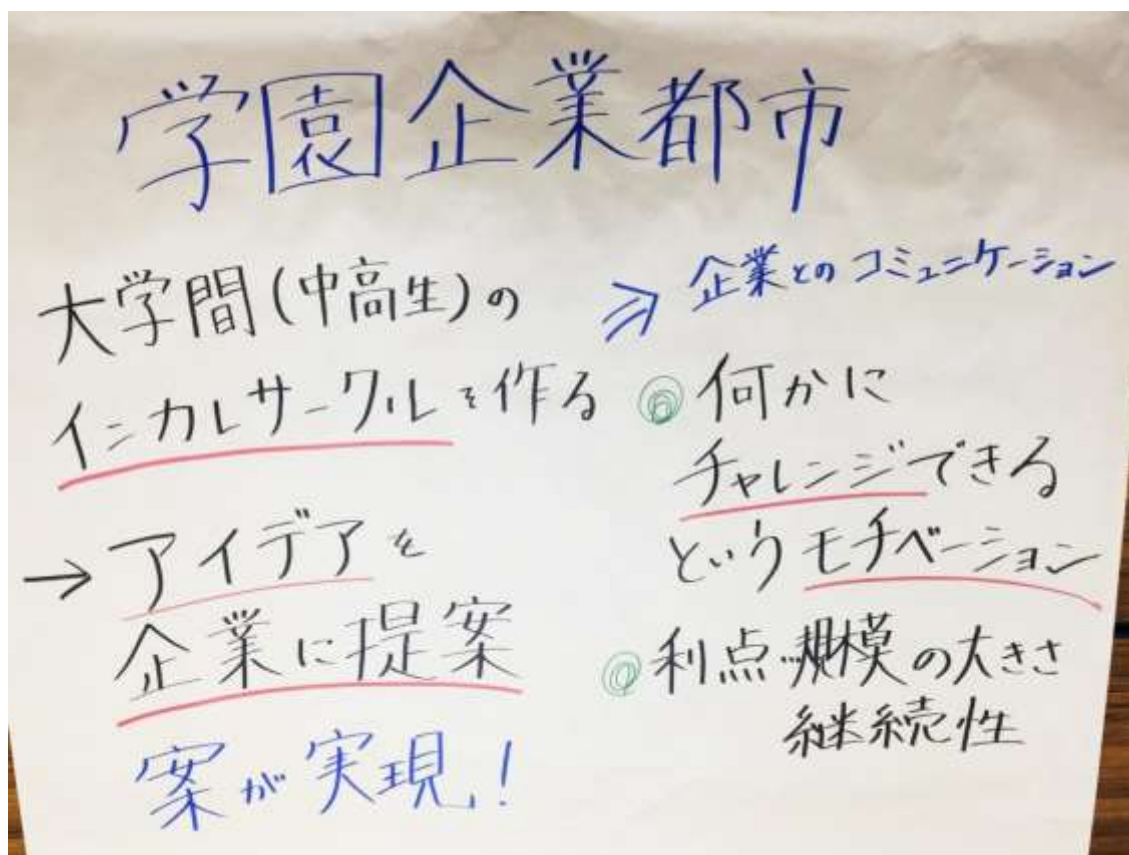 学園企業都市
大学間(中高生)の
インカレサークルを作る
→アイデアを
企業に提案
案が実現!
⇒企業とのコミュニケーション
◎何かに
チャレンジできる
というモチベーション
◎利点…規模の大きさ
継続性